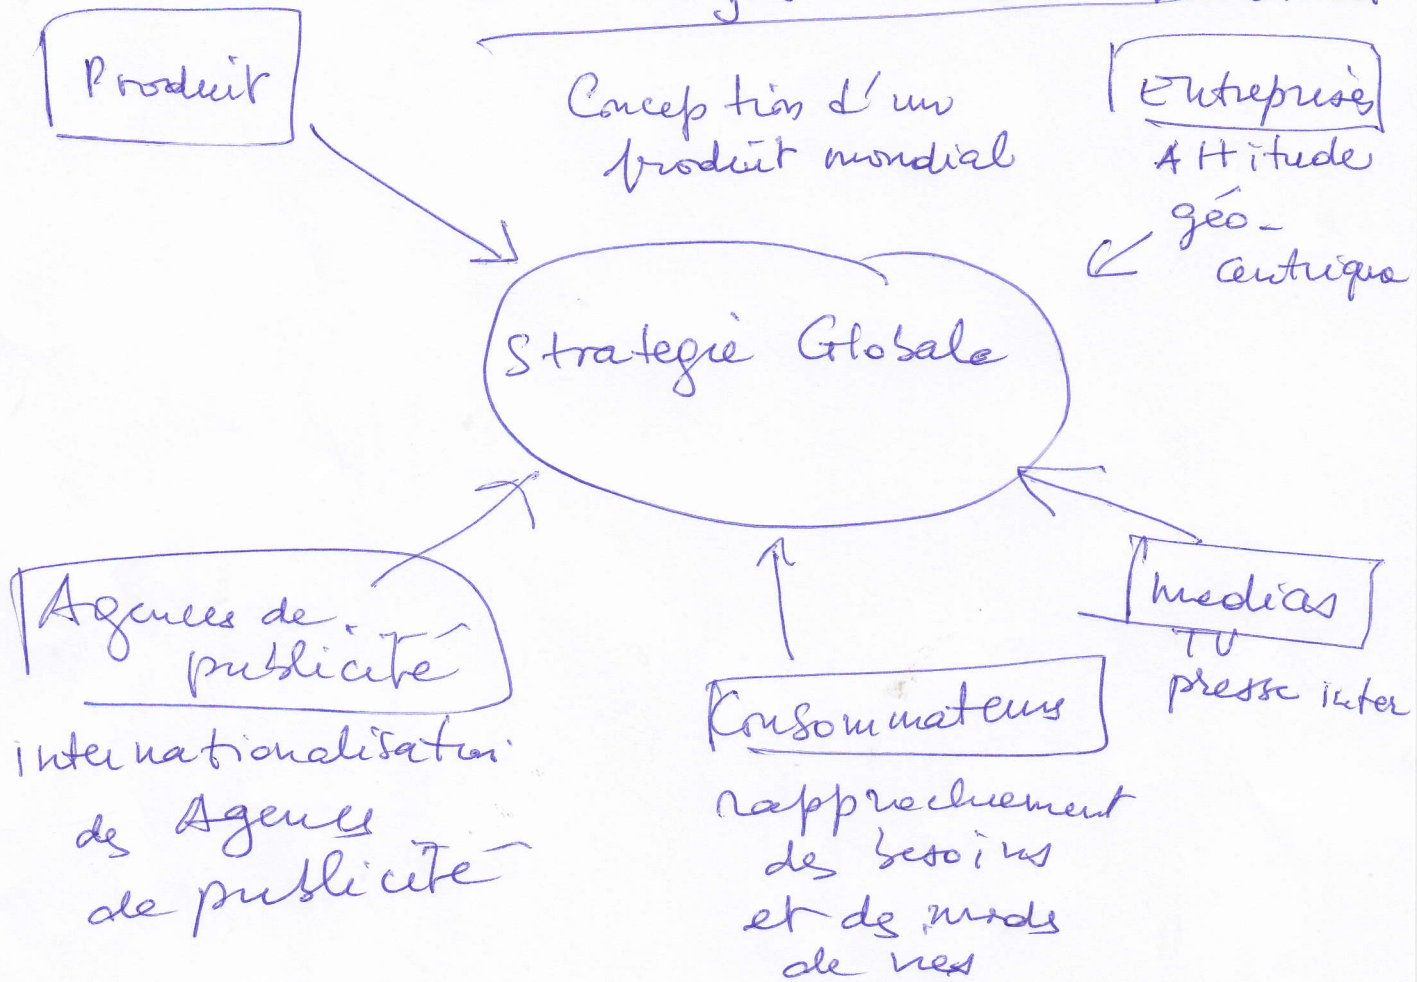 Produit
Conception d'un
produit mondial
Entreprises
Attitude
géo-
centrique
Strategie Globale
Agences de
publicité
internationalisation
des Agences
de publicité
Consommateurs
rapprochement
des besoins
et des mods
de vies
medias
TV
presse inter